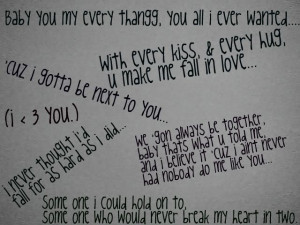 Baby you my every thangg, you all i ever wanted....
With every kiss, & every hug,
u make me fall in love...
'Cuz i gotta be next to you...
(i < 3 you.)
i never thought i'd
fall for as hard as i did...
we 'gon always be together,
baby thats what u told me,
and i believe it 'cuz i aint never
had nobody do me like you...
Some one i could hold on to,
Some one who would never break my heart in two.